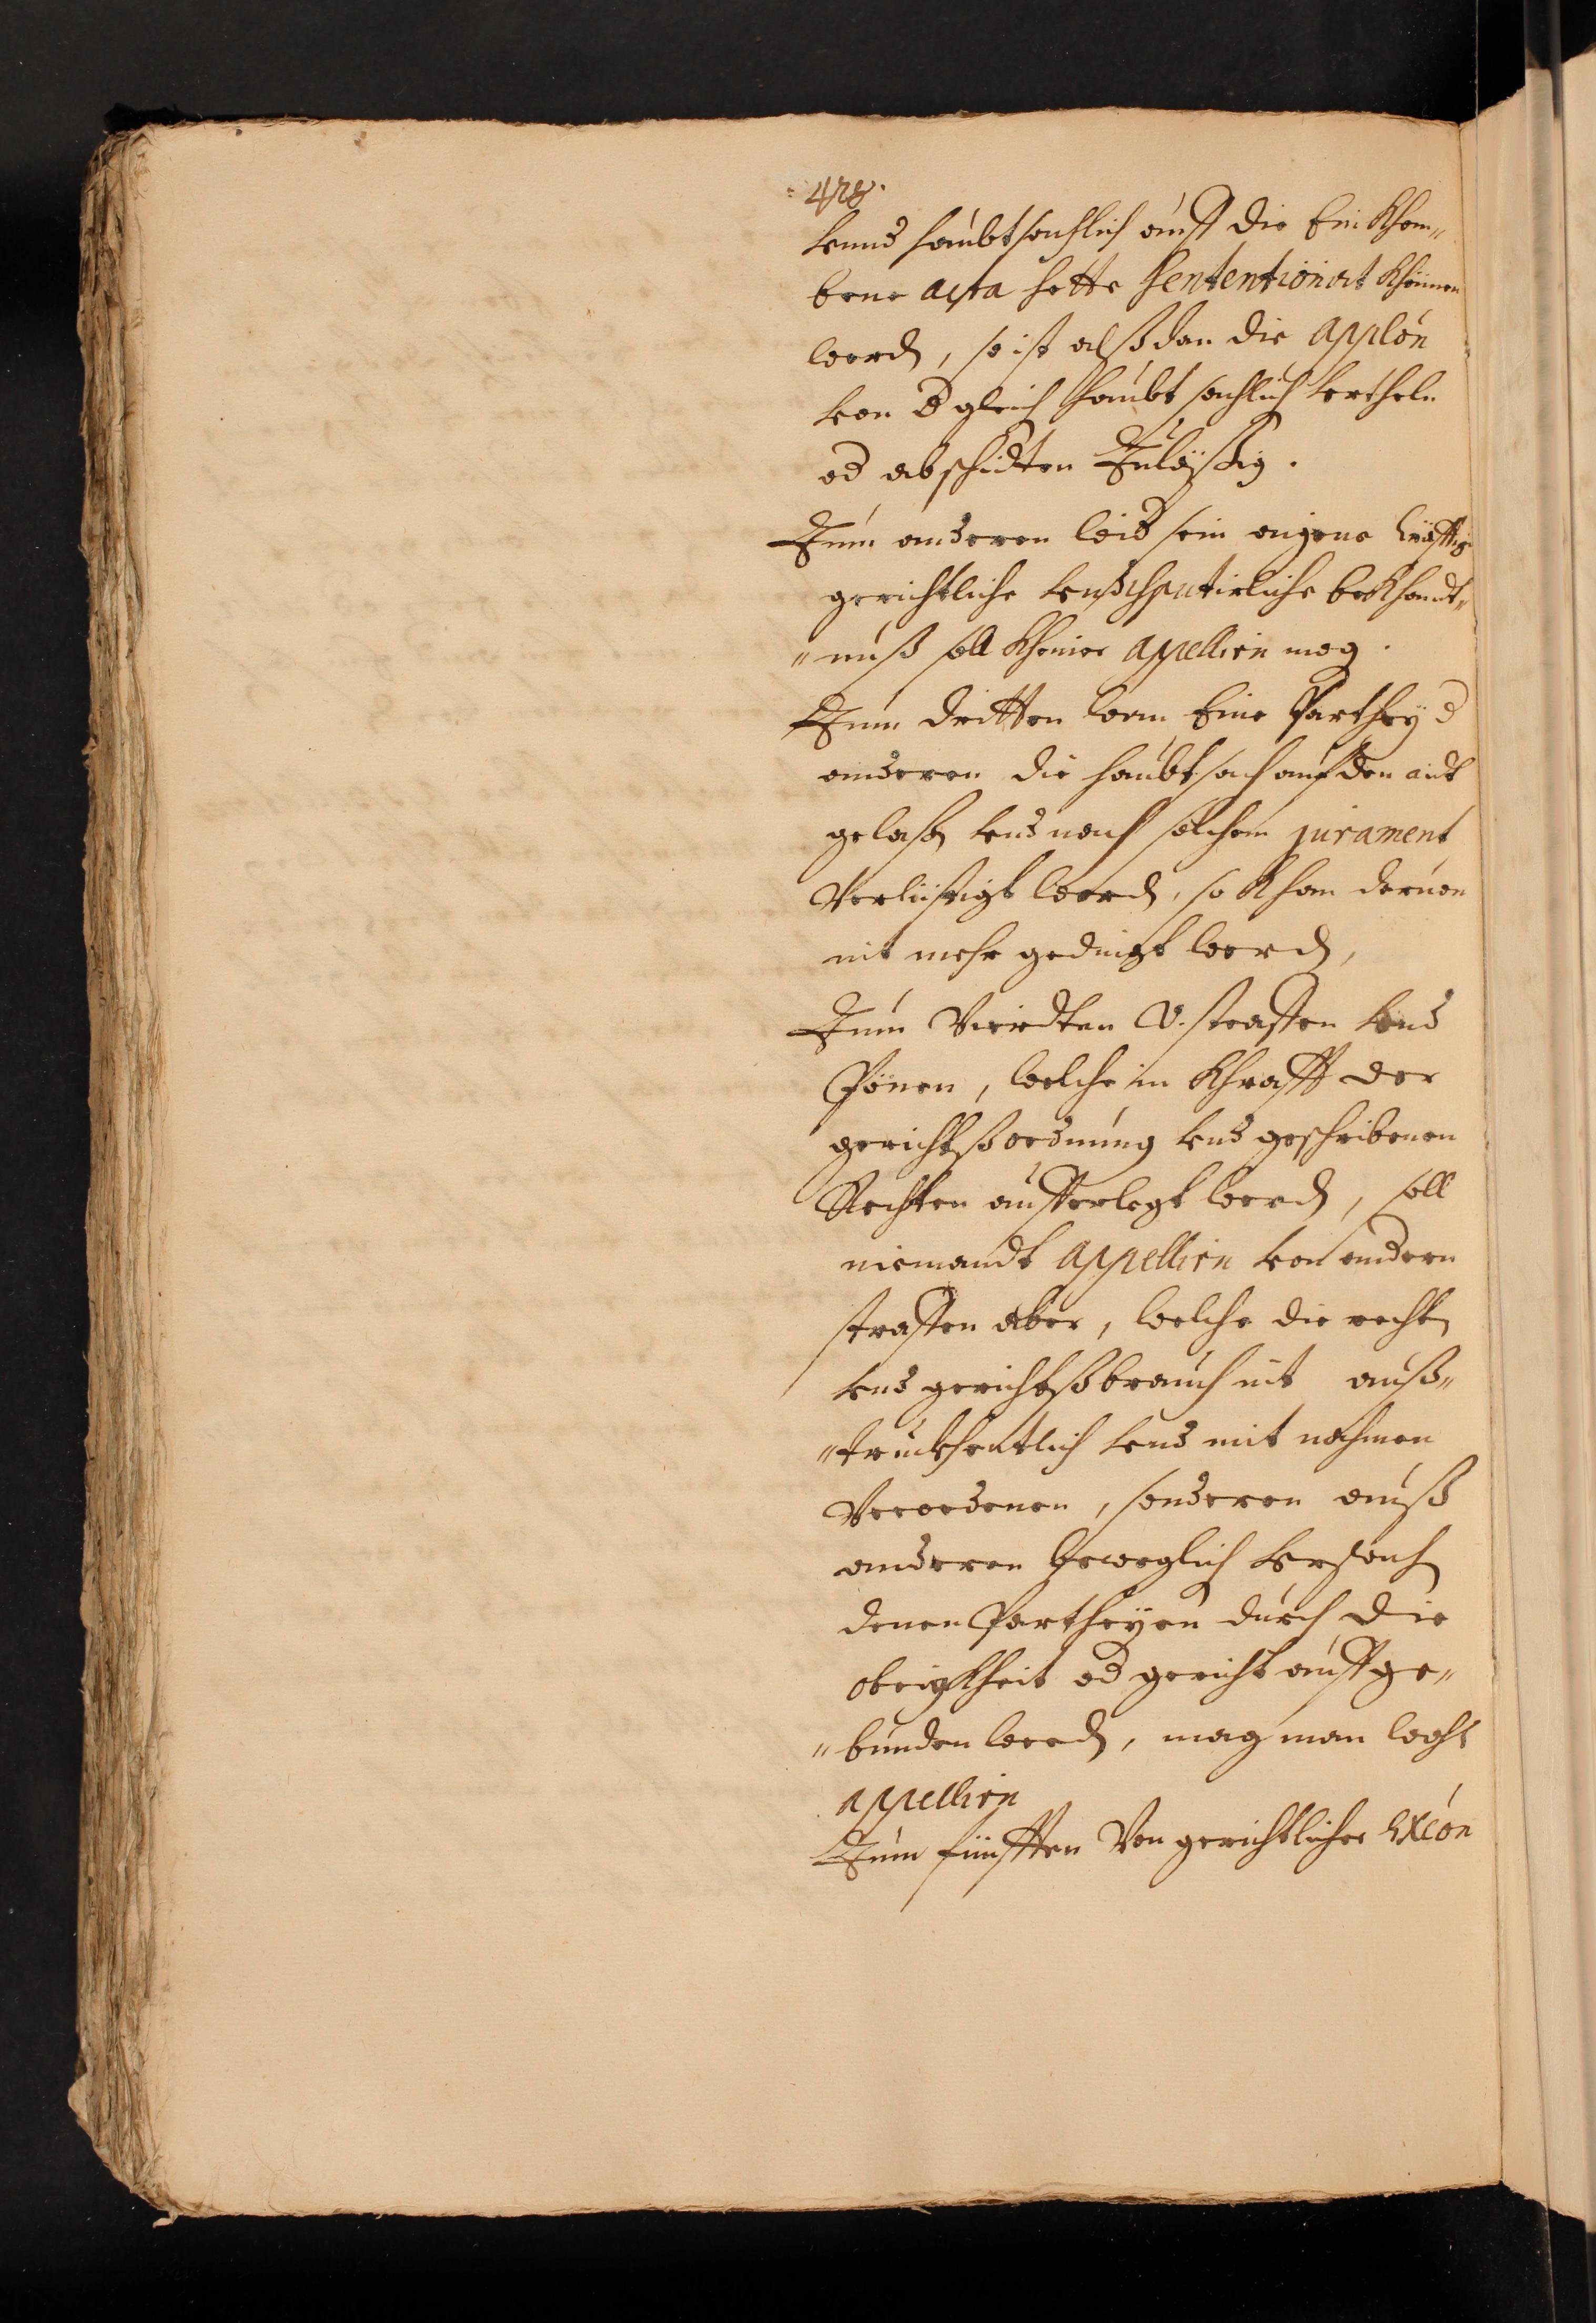 428.
vnnd haubtsachlich auff die Einkhom„
bene acta hette sententioniert khönnen
werdn, so ist alßdan die applôn
von d gleich haubtsachlich vrtheln
od abschidten Zuläßig.
Zum anderen wid sein aigene kräfftige
gerichtliche vnd bekhandt„
„nuß soll kheiner apellirn mög.
Zum dritten wan Eine Parthey d
anderen die haubtsach auf den aidt
gelaßn vnd nach solchem jurament
Verlüstigt werdn, so khan daruon
nit mehr gedingt werdn,
Zum Vierdten V. straffen vnd
Pönen, welche in Khrafft der
gerichtßordnung vnd geschribenen
Rechten aufferlegt werdn, soll
niemandt appellirn von andern
straffen aber, welche die rechtn
vnd gerichtßbrauch nit auß„
„truckhentlich vnd mit nahmen
Verordenen, sonderen auß
anderen beweglich vrsachn
denen Partheyen durch die
obrigkheit od gericht auffge„
„bunden werdn, mag man wohl
appellirn
Zum fünfften Von gerichtlicher Excôn